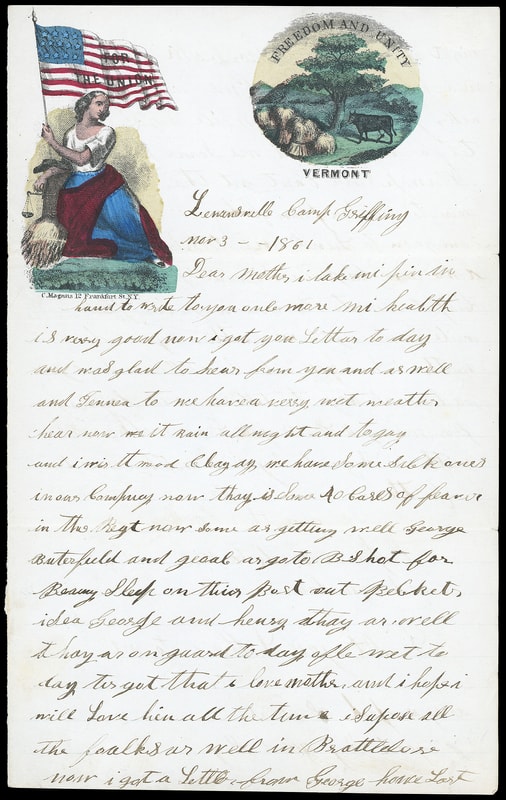 FREEDOM AND UNITY
FOR
THE UNION
VERMONT
C. Magnus 12 Frankfort St. N.Y.
Camp Griffing
nov 3 - - 1861
Dear Mother i take mi pin in
hand to write to you onle more mi health
is very good now i got you Letter to day
and was glad to hear from you and as well
and to we have a very wet weather
hear now it rain all night and to
and i we have Some Sick ones
in our Company now thay is Some 40 Cases of feaver
in this Regt now Some as getting well George
Buterfield and as goto B Shot for
Sleep on thier Post
idea George and henry thay ar well
thay ar on guard to day wet to
day that i love mother and i hope i
will Love him all the time i Supose all
the foalks ar well in
now i got a Letter from George howe Last